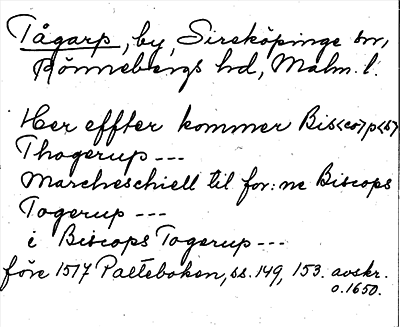 Tågarp, by, Sireköpinge sn,
Rönnebergs hd, Malm. l.
Her effter kommer Bis<co>p<s>
Thogerup ---
Marcheschiell til for: ne Biscops
Togerup ---
i Biscops Togerup ---
före 1517 Palteboken, ss. 149, 153. avskr.
o. 1650.